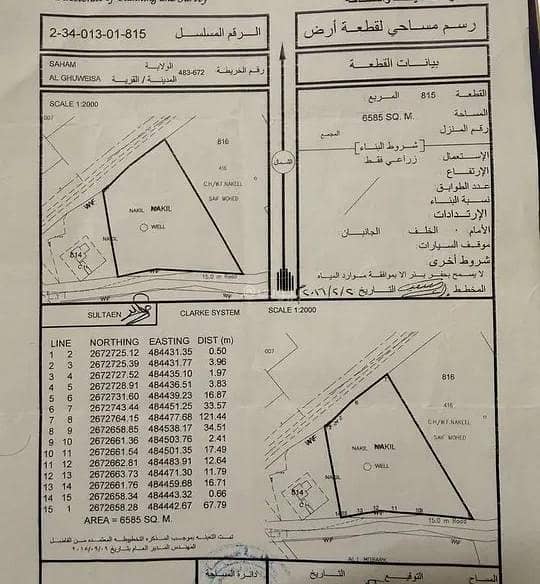 رسم مساحي لقطعة أرض
الرقم المسلسل 2-34-013-01-815
بيانات القطعة
SAHAM الولاية
AL GHUWEISA المدينة / القرية
رقم الخريطة 483-672
القطعة 815 المربع
المساحة 6585 SQ. M.
رقم المنزل المجمع
شروط البناء
الإستعمال زراعي فقط
الإرتفاع
عدد الطوابق
نسبة البناء
الإرتدادات
الأمام الخلف الجانبان
موقف السيارات
شروط أخرى
لا يسمح بحفر بئر الا بموافقة موارد المياه
المخطط التاريخ
SCALE 1:2000
007
816
416
C.H/W.F. NAKEEL
SAIF MOHED
NAKIL NAKIL
WELL
WF
NAKIL
814
15.0 m Road
WF
الشمال
SULTAEN
CLARKE SYSTEM
SCALE 1:2000
LINE NORTHING EASTING DIST (m)
1 2 2672725.12 484431.35 0.50
2 3 2672725.39 484431.77 3.96
3 4 2672727.52 484435.10 1.97
4 5 2672728.91 484436.51 3.83
5 6 2672731.60 484439.23 16.87
6 7 2672743.44 484451.25 33.57
7 8 2672764.15 484477.68 121.44
8 9 2672658.85 484538.17 34.51
9 10 2672661.36 484503.76 2.41
10 11 2672661.54 484501.35 17.49
11 12 2672662.81 484483.91 12.64
12 13 2672663.73 484471.30 11.79
13 14 2672661.76 484459.68 16.71
14 15 2672658.34 484443.32 0.66
15 1 2672658.28 484442.67 67.79
AREA = 6585 SQ. M.
007
816
416
C.H/W.F. NAKEEL
SAIF MOHED
WF
NAKIL NAKIL
WELL
814
15.0 m Road
WF
دائرة المساحة
التاريخ
التوقيع